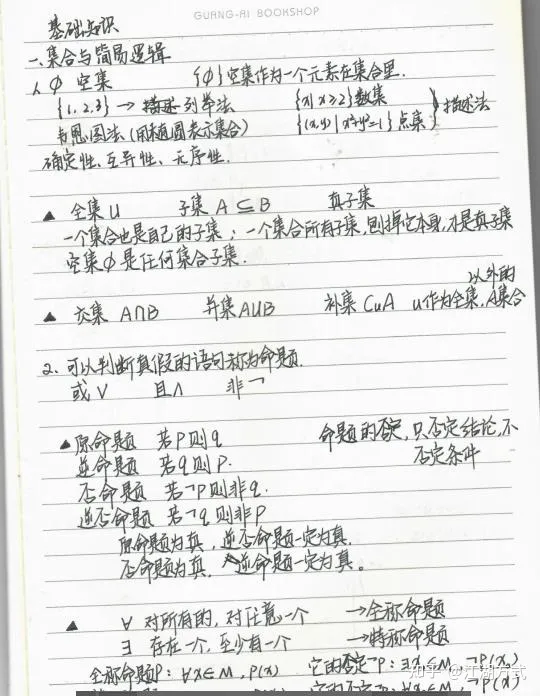 GUANG-AI BOOKSHOP
基础知识
一、集合与简易逻辑
1、∅ 空集 {∅}空集作为一个元素在集合里.
{1,2,3} → 列举法 {x|x≥2}数集
韦恩图法(用椭圆表示集合) {(x,y)|x²+y²=1}点集 } 描述法
确定性、互异性、无序性.
▲ 全集U 子集 A⊆B 真子集
一个集合也是自己的子集;一个集合所有子集,刨掉它本身,才是真子集
空集∅是任何集合子集.
▲ 交集 A∩B 并集A∪B 补集 CuA u作为全集,A集合
以外的
2、可以判断真假的语句称为命题.
或∨ 且∧ 非¬
▲原命题 若P则q 命题的否定,只否定结论,不
逆命题 若q则P. 否定条件
否命题 若¬P则非q.
逆否命题 若¬q则非P
原命题为真,逆否命题一定为真.
否命题为真,逆命题一定为真。
▲ ∀ 对所有的,对任意一个 →全称命题
∃ 存在一个,至少有一个 →特称命题
全称命题P:∀x∈M,P(x) 它的否定¬P:∃x∈M,¬P(x)
它的否定¬P:∀x∈M,¬P(x)
知乎 @江湖方式